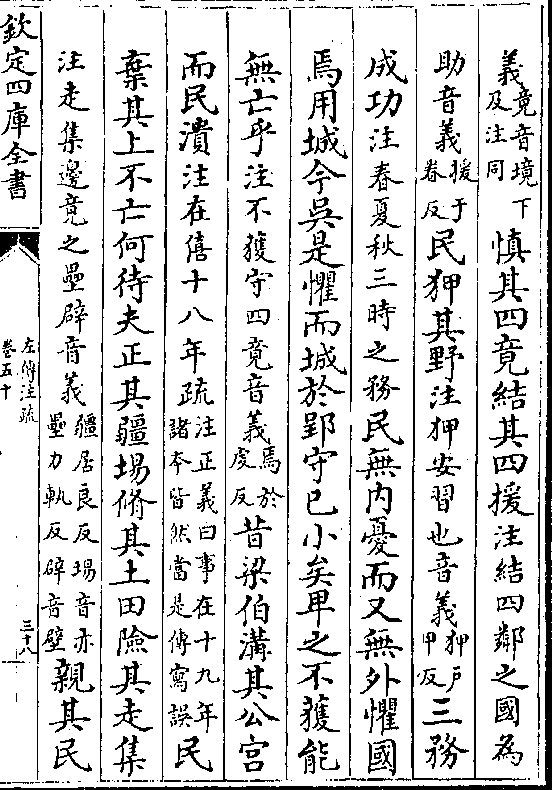 義竟音境下
及注同
慎其四竟結其四援注結四鄰之國為
助音義援于
眷反
民狎其野注狎安習也音義狎戶
甲反
三務
成功注春夏秋三時之務民無内憂而又無外懼國
焉用城今吳是懼而城於郢守已小矣卑之不獲能
無亡乎注不獲守四竟音義焉於
䖍反
昔梁伯溝其公宮
而民潰注在僖十八年疏注正義曰事在十九年
諸本皆然當是傳寫誤
民
棄其上不亡何待夫正其疆埸脩其土田險其走集
注走集邊竟之壘辟音義疆居良反埸音亦
壘力軌反辟音壁
親其民
欽定四庫全書
左傳注疏
卷五十
三十八